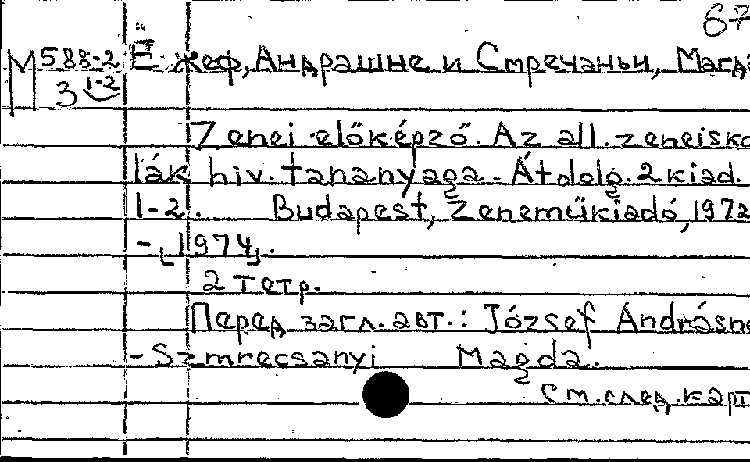 67
М 588-2 Ё жеф, Андрашне и Стречаньи, Магд
3 1-2
Zenei előképző. Az áll. zeneisko
lák hiv. tananyaga. Átdolg. 2 kiad.
1-2. Budapest, Zeneműkiadó, 1972
-[1974].
2 тетр.
Перед загл. авт.: József Andrásne
- Szmrecsanyi Magda.
См. след. карт